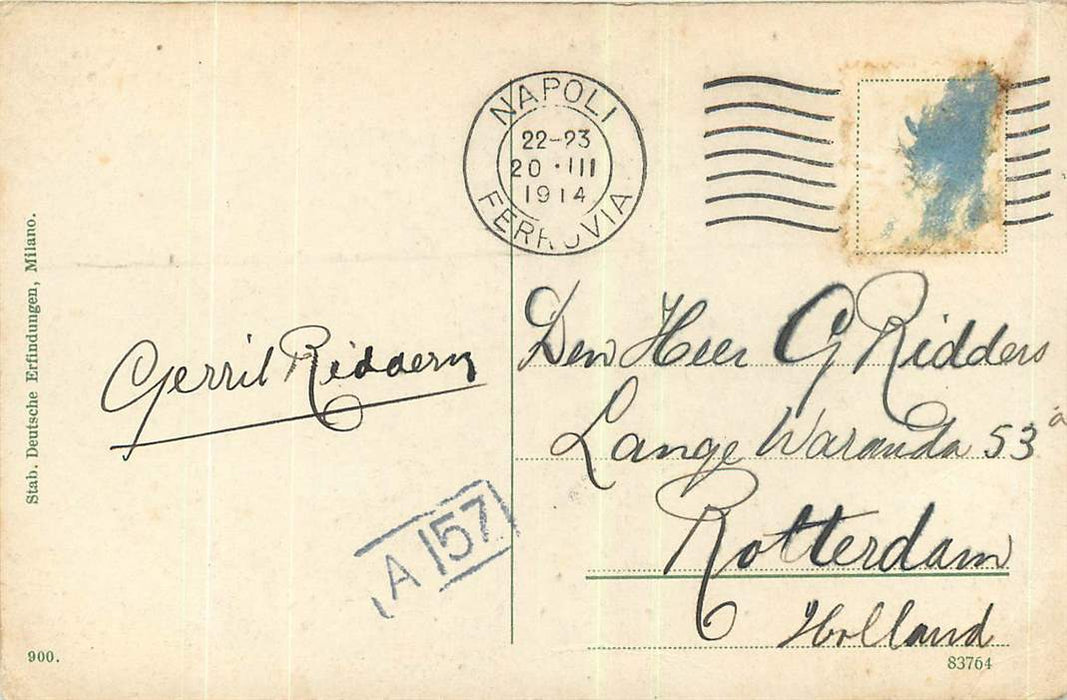 NAPOLI
22-23
20 • III
1914
FERROVIA
Stab. Deutsche Erfindungen, Milano.
Gerrit Ridders
Den Heer G Ridders
Lange Waranda 53a
Rotterdam
Holland
A 157
900.
83764